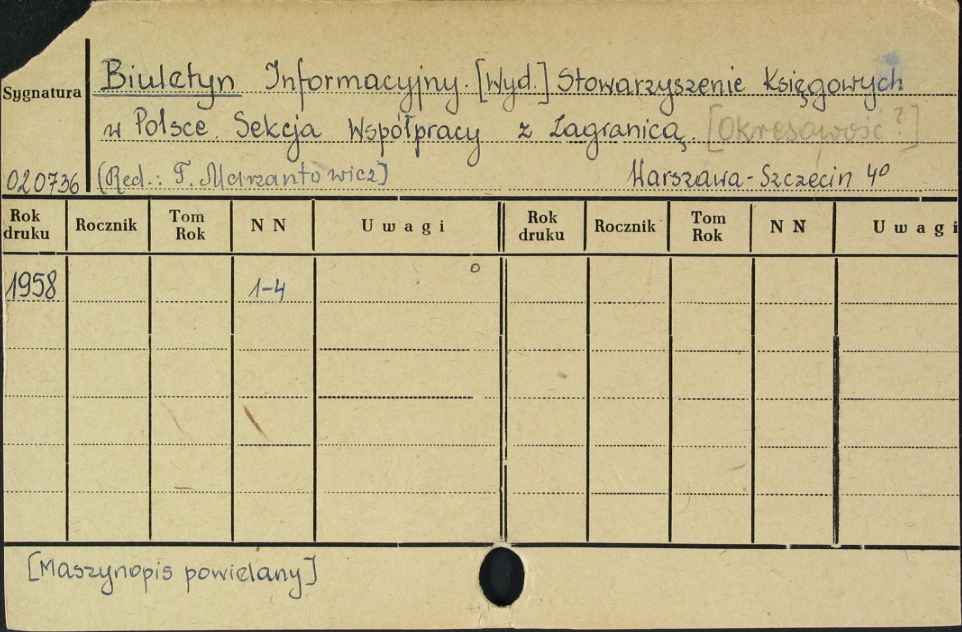 Biuletyn Informacyjny. [Wyd.] Stowarzyszenie Księgowych
Sygnatura
w Polsce. Sekcja Współpracy z Zagranicą. [Okresowość?]
020736 (Red.: T. Marzantowicz] Warszawa-Szczecin 4º
Rok druku Rocznik Tom Rok N N Uwagi Rok druku Rocznik Tom Rok N N Uwagi
1958 1-4
[Maszynopis powielany]